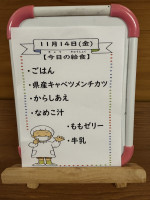 11月14日(金)
【今日の給食】
・ごはん
・県産キャベツメンチカツ
・からしあえ
・なめこ汁
・ももゼリー
・牛乳